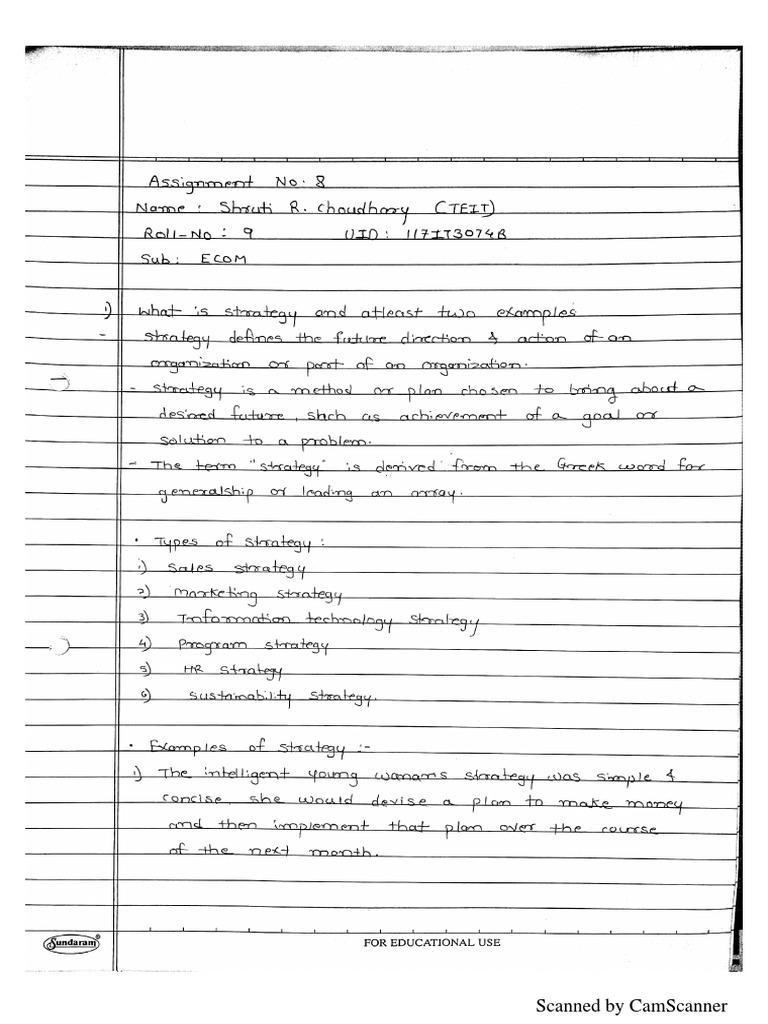 Assignment No: 8
Name: Shruti R. Choudhary (TEIT)
Roll-No: 9 UID: 117IT3074B
Sub: ECOM
1) What is strategy and atleast two examples
- strategy defines the future direction & action of an
organization or part of an organization.
- strategy is a method or plan chosen to bring about a
desired future, such as achievement of a goal or
solution to a problem.
- The term "strategy" is derived from the Greek word for
generalship or leading an array.
• Types of strategy :
1) Sales strategy
2) Marketing strategy
3) Information technology strategy
4) Program strategy
5) HR strategy
6) Sustainability strategy.
• Examples of strategy :-
1) The intelligent young womans strategy was simple &
concise, she would devise a plan to make money
and then implement that plan over the course
of the next month.
Sundaram®
FOR EDUCATIONAL USE
Scanned by CamScanner